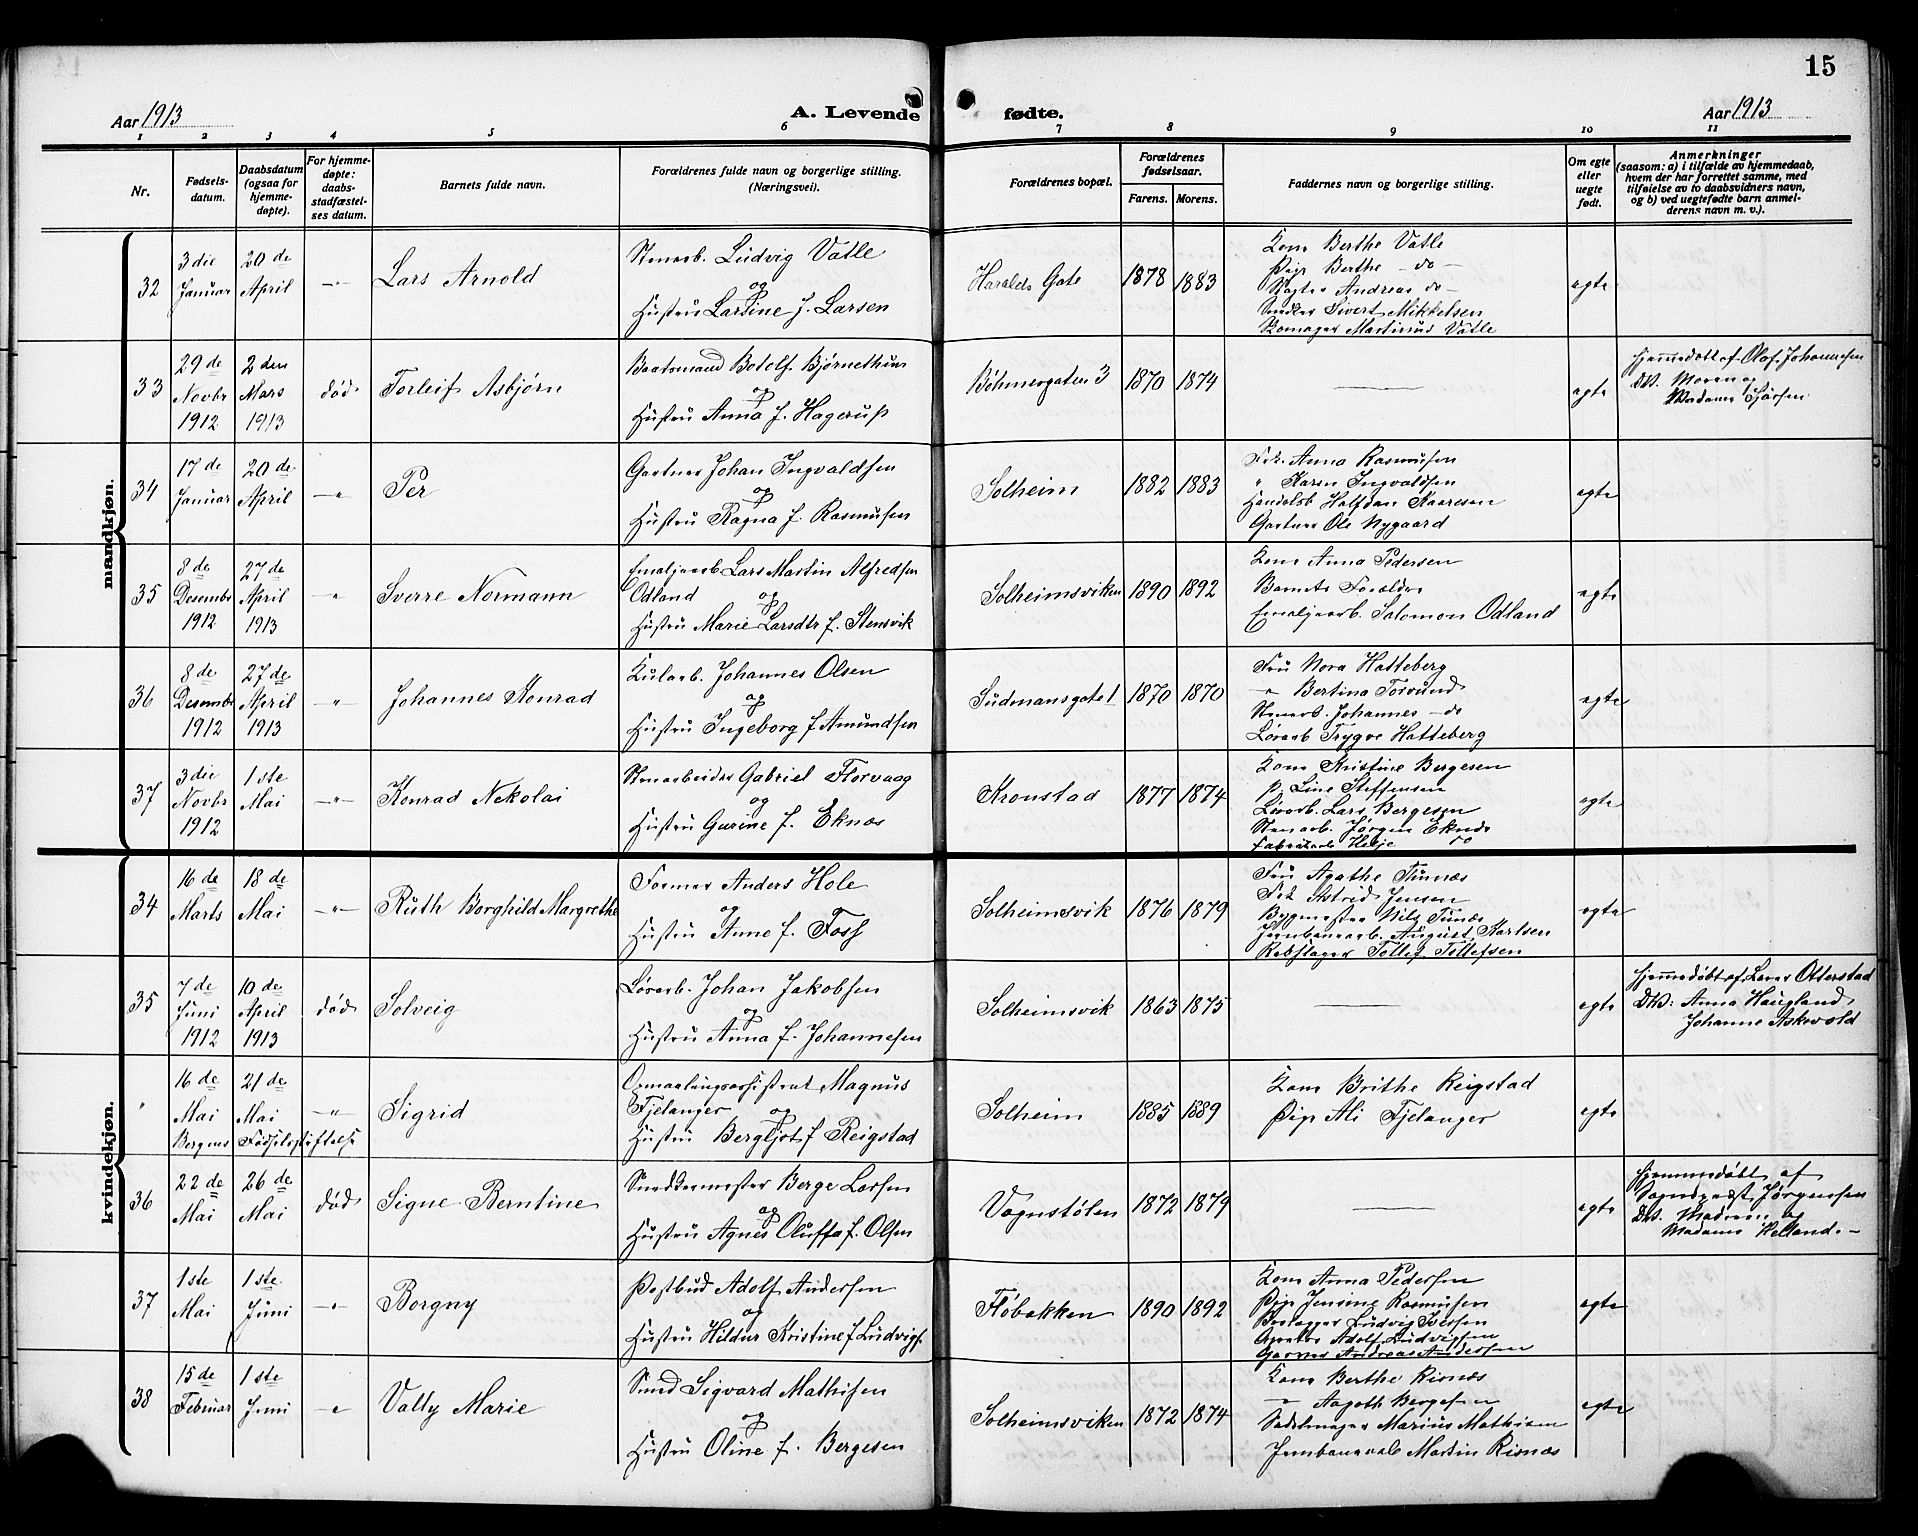 15
Aar 1913
A. Levende fødte.
Aar 1913
1 2 3 4 5 6 7 8 9 10 11
Nr.
Fødsels-
datum.
Daabsdatum
(ogsaa for
hjemme-
døpte).
For hjemme-
døpte:
daabs-
stadfæstel-
ses datum.
Barnets fulde navn.
Forældrenes fulde navn og borgerlige stilling.
(Næringsvei).
Forældrenes bopæl.
Forældrenes
fødselsaar.
Farens. Morens.
Faddernes navn og borgerlige stilling.
Om egte
eller
uegte
født.
Anmerkninger
(saasom: a) i tilfælde av hjemmedaab,
hvem der har forrettet samme, med
tilføielse av to daabsvidners navn,
og b) ved uegtefødte barn anmel-
derens navn m. v.).
mandkjøn.
32
3die
Januar
20de
April
-"-
Lars Arnold
Stenarb. Ludvig Vatle
og
Hustru Larsine f. Larsen
Haralds Gate
1878 1883
Kone Berthe Vatle
Pige Berthe -do-
Andreas do-
Snedker Sivert Mikkelsen
Skomager Martinus Vatle
egte
33
29de
Novbr
1912
2den
Mars
1913
død
Torleif Asbjørn
Baatsmand Botolf Bjørnethun
og
Hustru Anna f. Hagerup
Bøhmergaten 3
1870 1874
—
egte
Hjemmedøbt af Olaf Johannesen
DV. Moren og
Madame
34
17de
Januar
20de
April
-"
Per
Gartner Johan Ingvaldsen
og
Hustru Ragna f. Rasmusen
Solheim
1882 1883
Frk. Anna Rasmusen
" Karen Ingvaldsen
Handelsb Halfdan Kaaresen
Gartner Ole Nygaard
egte
35
8de
Desembr
1912
27de
April
1913
-"
Sverre Normann
Emaljearb. Lars Martin Alfredsen
Odland og
Hustru Marie Larsdtr f. Stensvik
Solheimsviken
1890 1892
Kone Anna Pedersen
Barnets Forældre
Emaljearb. Salomon Odland
egte
36
8de
Desembr
1912
27de
April
1913
-"-
Johannes Konrad
Kularb. Johannes Olsen
og
Hustru Ingeborg f Amundsen
Sudmansgate 1
1870 1870
Fru Nora Hatteberg
-" Bertina Torvund
Stenarb. Johannes -do
Løsarb Trygve Hatteberg
egte
37
3die
Novbr
1912
1ste
Mai
-"-
Konrad Nekolai
Stenarbeider Gabriel Florvaag
og
Hustru Gurine f. Eknes
Kronstad
1877 1874
Kone Kristine Bergesen
P. Line Steffensen
Løsarb. Lars Bergesen
Stenarb. Jørgen Eknes
Fabrikarb Helje do
egte
kvindekjøn.
34
16de
Marts
18de
Mai
-"-
Ruth Borghild Margrethe
Former Anders Hole
og
Hustru Anne f. Foss
Solheimsvik
1876 1879
Fru Agathe Tunnæs
Frk Astrid Jensen
Bygmester Nils Tunæs
Jernbanearb. August Karlsen
Rebslager Tollef Tollefsen
egte
35
7de
Juni
1912
10de
April
1913
død
Solveig
Løsarb. Johan Jakobsen
og
Hustru Anna f. Johannesen
Solheimsvik
1863 1875
—
egte
Hjemmedøbt af Otterstad
DV: Anna Haugland
Johanne Askvold
"
16de
Mai
Bergens
21de
Mai
Fødselsstiftelse
-"-
Sigrid
Opmaalingsassistent Magnus
Fjelanger og
Hustru Bergljot f Reigstad
Solheim
1885 1889
Kone Brithe Reigstad
Pige Ali Fjelanger
egte
36
22de
Mai
26de
Mai
død
Signe Berntine
Snedkermester Berge Larsen
og
Hustru Agnes Oluffa f. Olsen
Vognstølen
1872 1879
—
egte
Hjemmedøbt af
Sogneprest Jørgensen
DV. Moren og
Madame Helland.-
37
1ste
Mai
1ste
Juni
-"-
Borgny
Postbud Adolf Andersen
og
Hustru Hildur Kristine f Ludvigs.
Fløbakken
1890 1892
Kone Anna Pedersen
Pige Jensine Rasmusen
Ludvig Iversen
Adolf Ludvigsen
Garver Andreas Andersen
egte
38
15de
Februar
1ste
Juni
-"
Vally Marie
Smed Sigvard Mathisen
og
Hustru Oline f. Bergesen
Solheimsviken
1872 1874
Kone Berthe Risnæs
-" Aagoth Bergesen
Sadelmager Marius Mathisen
Martin Risnæs
egte